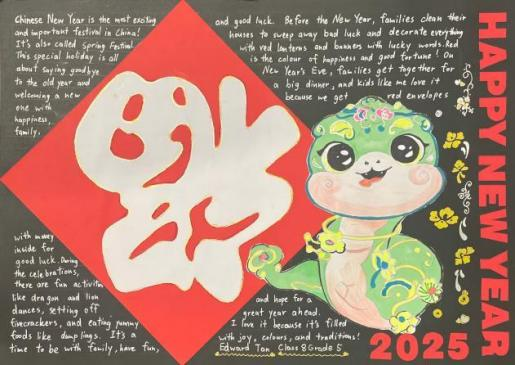 Chinese New Year is the most exciting
and important festival in China!
It's also called Spring Festival.
This special holiday is all
about saying goodbye
to the old year and
welcoming a new
one with
happiness,
family,
and good luck. Before the New Year, families clean their
houses to sweep away bad luck and decorate everything
with red lanterns and banners with lucky words. Red
is the colour of happiness and good fortune! On
New Year's Eve, families get together for
a big dinner, and kids like me love it
because we get red envelopes
with money
inside for
good luck. During
the celebrations,
there are fun activities
like dragon and lion
dances, setting off
firecrackers, and eating yummy
foods like dumplings. It's a
time to be with family, have fun,
and hope for a
great year ahead.
I love it because it's filled
with joy, colours, and traditions!
Edward Tan Class 8 Grade 5
福
HAPPY NEW YEAR
2025